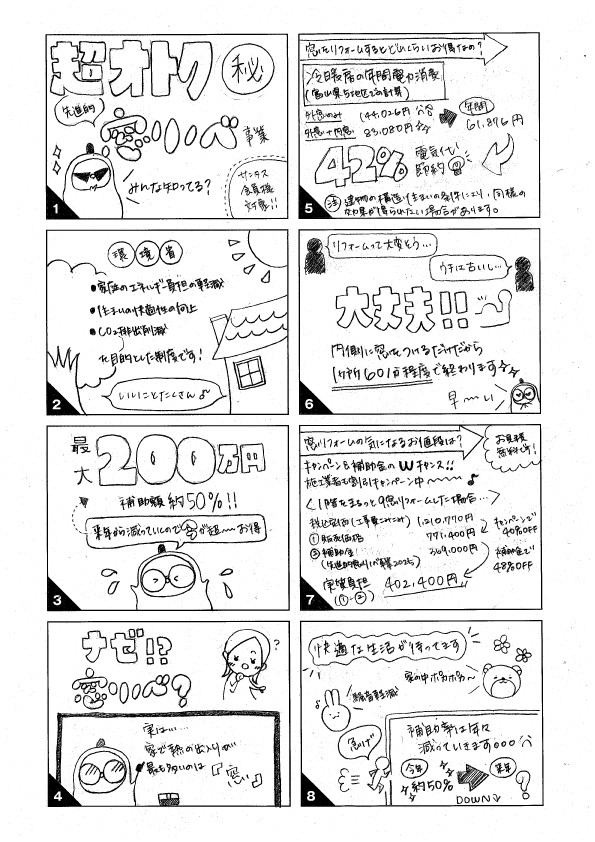 超オトク 秘
先進的
窓リノベ
事業
みんな知ってる?
サンタス
会員様
対象!!
1
環境省
●家庭のエネルギー負担の軽減
●住まいの快適性の向上
●CO2排出削減
を目的とした制度です!
いいことたくさん♪
2
最大
200万円
補助額 約50%!!
来年から減っていくので今が超〜〜お得
3
ナゼ!?
窓リノベ?
?
実は…
家で熱の出入りが
最も多いのは
『窓』
4
窓をリフォームするとどれくらいお得なの?
冷暖房の年間電力消費
外窓のみ 144,026円
外窓+内窓 83,080円
年間
61,896円
42%
電気代
節約
注 建物の構造や住まいの条件により、同様の
効果が得られない場合があります。
5
リフォームって大変そう…
ウチは古いし…
大丈夫!!
内側に窓をつけるだけだから
1か所60分程度で終わります
早〜い
6
窓リフォームの気になるお値段は?
お見積
無料です!
キャンペーン&補助金のWチャンス!!
施工業者も割引キャンペーン中〜〜♪
<1階をまるっと9窓リフォームした場合…>
税込定価(工事費こみこみ) 1,210,770円
①販売価格 771,400円
キャンペーンで
40%OFF
②補助金 369,000円
(先進的窓リノベ事業2025)
補助金で
48%OFF
実質負担
(①-②)
402,400円
7
快適な生活が待ってます
家の中ポカポカ〜
騒音軽減
急げ
補助率は年々
減っていきます
今年
約50%
来年
?
DOWN↓
8